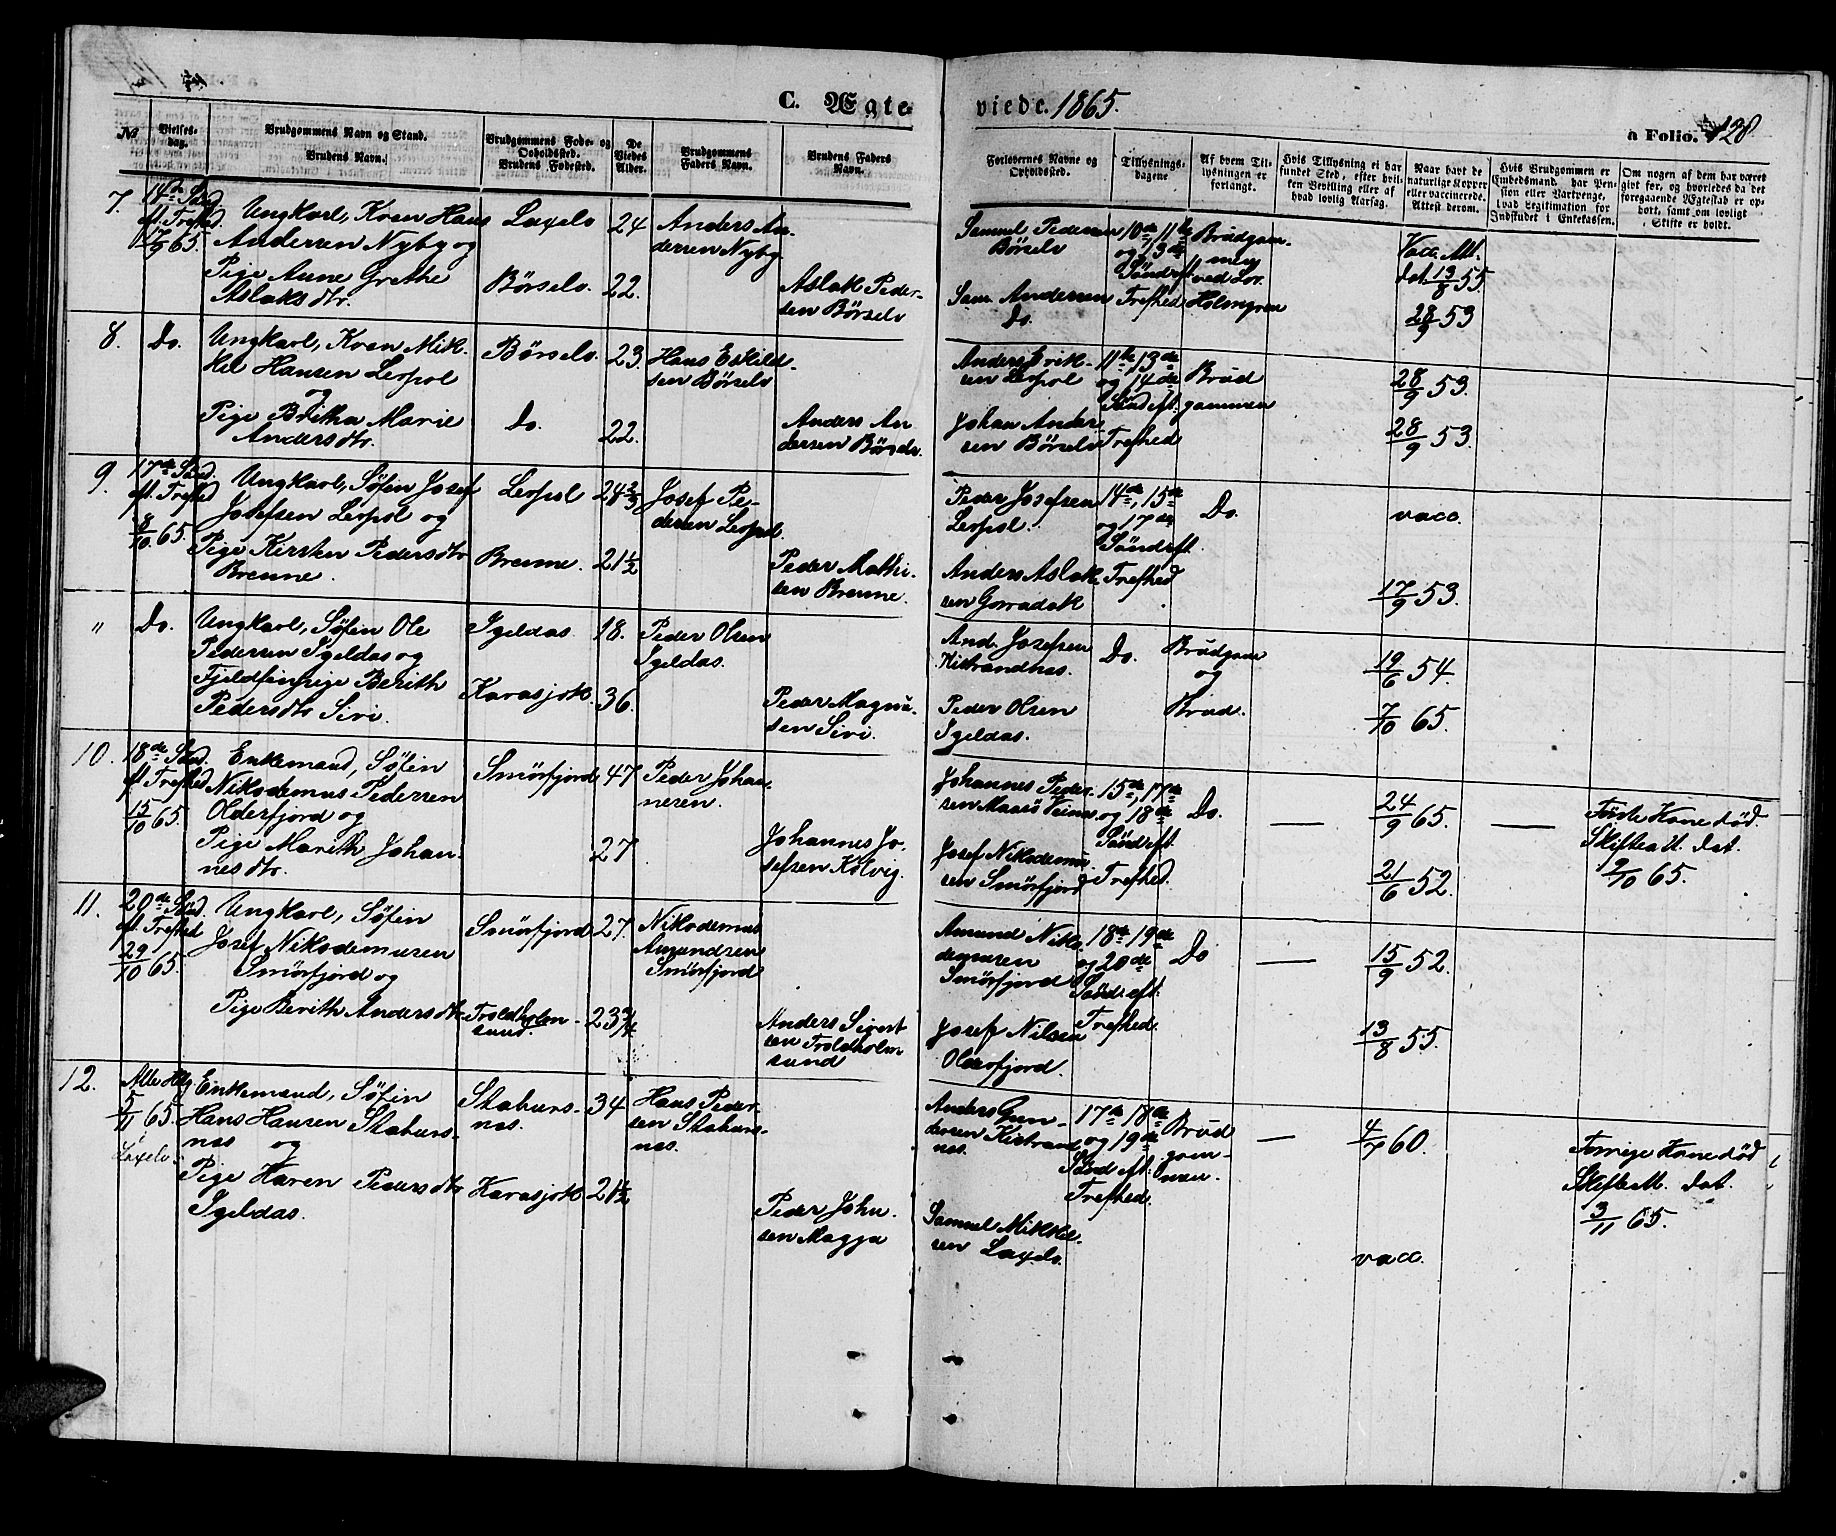 C. Ægteviede. 1865.
a Folio. 128
No
Vielses-dag.
Brudgommens Navn og Stand.
Brudens Navn.
Brudgommens Føde- og Opholdssted.
Brudens Fødested.
De Viedes Alder.
Brudgommens Faders Navn.
Brudens Faders Navn.
Forlovernes Navne og Opholdssted.
Tillysnings-dagene.
Af hvem Tillysningen er forlangt.
Hvis Tillysning ei har fundet Sted, efter hvilken Bevilling eller af hvad lovlig Aarsag.
Naar havt de naturlige Kopper eller vaccinerede. Attest derom.
Hvis Brudgommen er Embedsmand, har Pension eller Vartpenge, hvad Legitimation for Indskudet i Enkekassen.
Om nogen af dem har været gift før, og hvorledes da det foregaaende Ægteskab er ophørt, samt om lovligt Skifte er holdt.
7.
14de Sønd
ef. Trefhed
17/9 65.
Ungkarl, Kven Hans
Andersen Nyby og
Pige Anne Grethe
Aslaksdtr.
Laxelv
Börselv.
24
22.
Anders An-
dersen Nyby
Aslak Peder-
sen Börselv
Samuel Pedersen
Börselv
Sam. Andersen
Do.
10de, 11te
og 13de
Sönd eft.
Trefhed
Brudgom-
men
ved Lov.
Holmgren
Vacc. Att.
dat. 13/8 55
28/9 53
8.
Do.
Ungkarl, Kven Mik-
kel Hansen Lerpol
og
Pige Britha Marie
Andersdtr.
Börselv.
Do.
23.
22.
Hans Eskild-
sen Börselv
Anders An
dersen Börselv.
Anders Erik-
sen Lerpol
Johan Ander
sen Börselv
11te 13de
og 14de
Sönd eft.
Trefhed
Brud
gommen
28/9 53.
28/9 53.
9.
17de Sönd.
ef. Trefhed
8/10. 65.
Ungkarl, Söfin Josef
Josefsen Lerpol og
Pige Kirsten Pedersdtr
Brenne.
Lerpol
Brenne.
21 1/2
Josef Pe-
dersen Lerpol.
Peder Mathi-
sen Brenne.
Peder Josefsen
Lerpol.
Anders Aslak
sen Gorradak
14de, 15de
og 17de
Sönd eft.
Trefhed
Do.
vacc.
17/9 53.
"
Do.
Ungkarl, Söfin Ole
Pedersen Igeldas og
Fjeldfinpige Berith
Pedersdtr Sivi.
Igeldas.
Karasjok.
18.
36.
Peder Olsen
Igeldas.
Peder Magnu-
sen Sivi.
And. Josefsen
Kistrandnes.
Peder Olsen
Igeldas.
Do.
Brudgom
og
Brud.
19/6 54.
7/10 65.
10.
18de Sönd.
ef. Trefhed
15/10 65.
Enkemand, Söfin
Nikodemus Pedersen
Olderfjord og
Pige Marith Johan-
nesdtr.
Smörfjord
47
27
Peder Johan-
nesen.
Johannes Jo-
sefsen Kolvig.
Johannes Peder-
Josef Nikodemu
sen Smörfjord
15de, 17de
og 18de
Sönd eft.
Trefhed.
Do.
24/9 65.
21/6 52.
Förste Kone död.
Skifteatt. dat.
9/10 65.
11.
20de Sönd.
ef. Trefhed
29/10 65.
Ungkarl, Söfin
Josef Nikodemusen
Smörfjord og
Pige Berith Andersdtr
Smörfjord
Troldholm-
sund.
27.
23 3/4
Nikodemus
Amundsen
Smörfjord
Anders Sivert
sen Troldholm
sund
Amund Niko
demusen
Smörfjord
Josef Nilsen
Olderfjord.
18de 19de
og 20de
Sönd eft.
Trefhed.
Do
15/9 52.
13/8 55.
12.
Alle Helg
5/11 65.
Laxelv.
Enkemand, Söfin
Hans Hansen Stabursnes
og
Pige Karen Pedersdtr
Igeldas.
Stabursnes.
Karasjok
34
21 1/2
Hans Peder-
sen Stabursnes.
Peder John-
sen Magga
Anders Gun-
dersen Kistrand
nes.
Samuel Mikkel-
sen Laxelv.
17de 18de
og 19de
Sönd eft.
Trefhed.
Brud
gom-
men.
60.
vacc.
Forrige Kone död
Skifteatt. dat.
3/11 65.